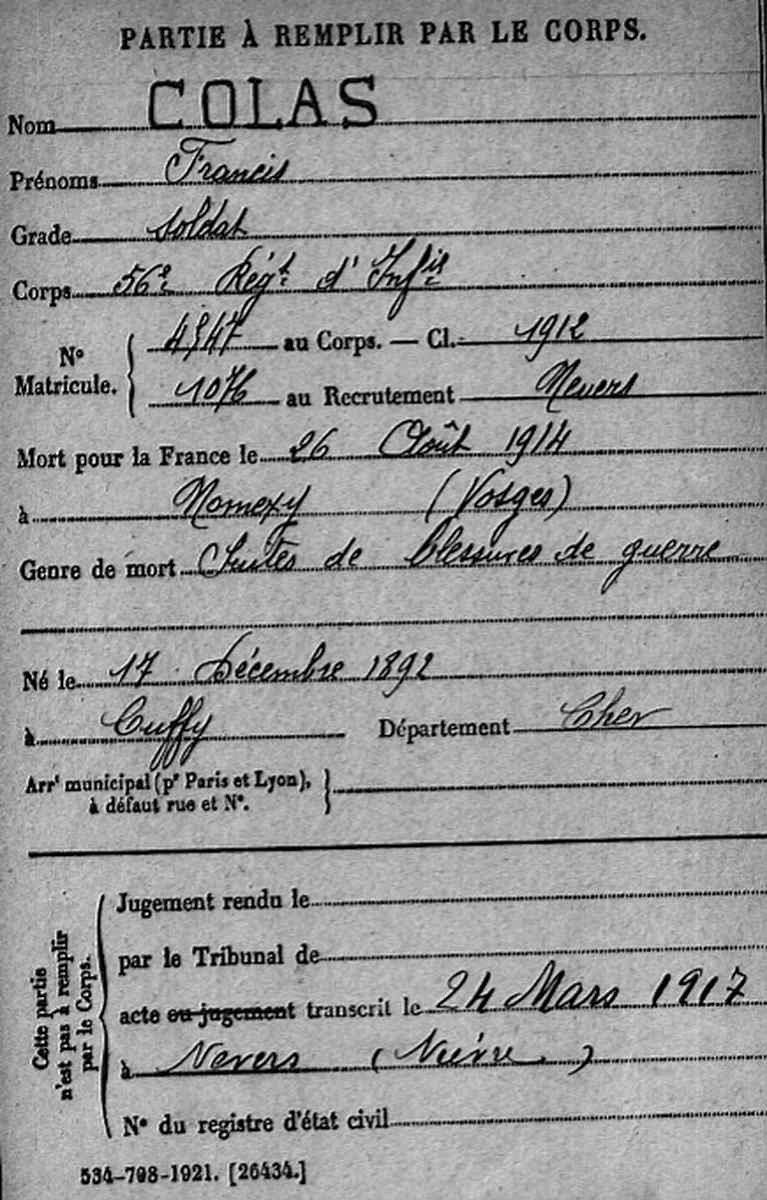 PARTIE À REMPLIR PAR LE CORPS.
Nom COLAS
Prénoms Francis
Grade soldat
Corps 56e Régt d'Infie
N° Matricule. { 4547 au Corps. — Cl. 1912
1076 au Recrutement Nevers
Mort pour la France le 26 Août 1914
à Nomexy (Vosges)
Genre de mort Suites de blessures de guerre
Né le 17 Décembre 1892
à Cuffy Département Cher
Arrt municipal (pr Paris et Lyon),
à défaut rue et N°. }
Cette partie
n'est pas à remplir
par le Corps.
Jugement rendu le
par le Tribunal de
acte ou jugement transcrit le 24 Mars 1917
à Nevers (Nièvre.)
N° du registre d'état civil
534-708-1921. [26434.]